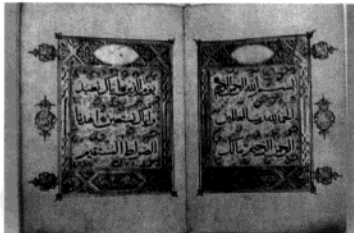 بسم الله الرحمن الرحيم
الحمد لله رب العالمين
الرحمن الرحيم مالك
يوم الدين إياك نعبد
وإياك نستعين اهدنا
الصراط المستقيم